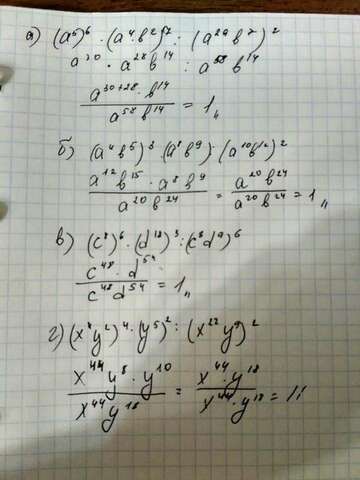 а) (a⁵)⁶ · (a⁴b²)⁷ : (a²⁹b⁷)²
a³⁰ · a²⁸b¹⁴ : a⁵⁸b¹⁴
a³⁰⁺²⁸ · b¹⁴ / a⁵⁸b¹⁴ = 1,,
б) (a⁴b⁵)³ · (a⁸b⁹) : (a¹⁰b¹²)²
a¹²b¹⁵ · a⁸b⁹ / a²⁰b²⁴ = a²⁰b²⁴ / a²⁰b²⁴ = 1,,
в) (c⁸)⁶ · (d¹⁸)³ : (c⁸d⁹)⁶
c⁴⁸ · d⁵⁴ / c⁴⁸d⁵⁴ = 1,,
г) y²)⁴ · (y⁵)² : (x²²y⁹)²
x⁴⁴y⁸ · y¹⁰ / x⁴⁴y¹⁸ = x⁴⁴ · y¹⁸ / x⁴⁴ · y¹⁸ = 1,,